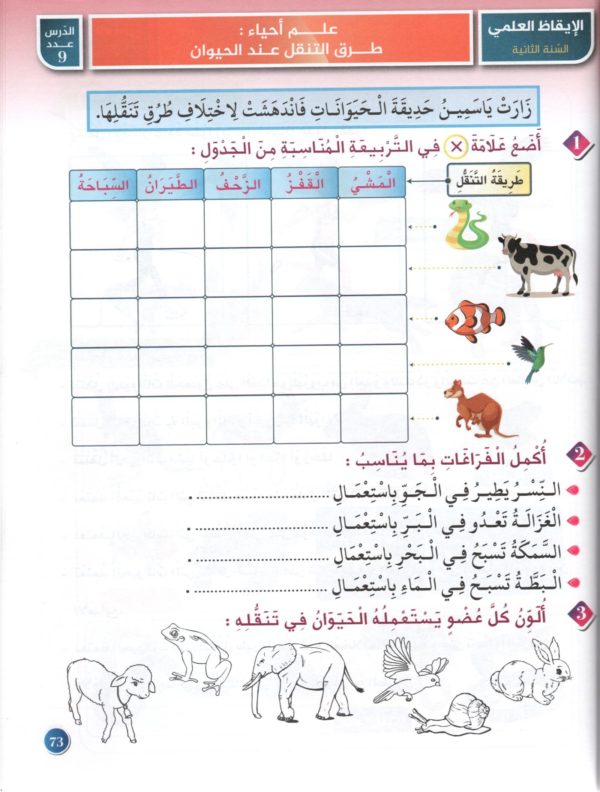 الإيقاظ العلمي
السّنة الثانية
علـــم أحياء :
طــرق التنقل عنـد الحيوان
الدّرس
عـدد
9
زَارَتْ يَاسَمِيـنُ حَدِيقَةَ الْـحَيَوَانَـاتِ فَانْدَهَشَتْ لِاخْتِلَافِ طُرُقِ تَنَقُّلِهَا.
1 أَضَعُ عَلَامَةَ × فِي التَّرْبِيعَةِ الْمُنَاسِبَةِ مِنَ الْجَدْوَلِ :
طَرِيقَةُ التَّنَقُّلِ الْـمَشْيُ الْـقَفْزُ الـزَّحْفُ الطَّيَرَانُ السِّبَاحَةُ
2 أُكْمِلُ الْفَرَاغَاتِ بِمَا يُنَاسِبُ :
الـنِّسْرُ يَطِيرُ فِـي الْـجَوِّ بِاسْتِعْمَالِ .............................. .
الْغَزَالَـةُ تَعْدُو فِـي الْـبَرِّ بِاسْتِعْمَالِ .............................. .
السَّمَكَةُ تَسْبَحُ فِـي الْـبَحْرِ بِاسْتِعْمَالِ .............................. .
الْـبَطَّـةُ تَسْبَحُ فِـي الْـمَاءِ بِاسْتِعْمَالِ .............................. .
3 أُلَوِّنُ كُلَّ عُضْوٍ يَسْتَعْمِلُهُ الْحَيَوَانُ فِي تَنَقُّلِهِ :
73